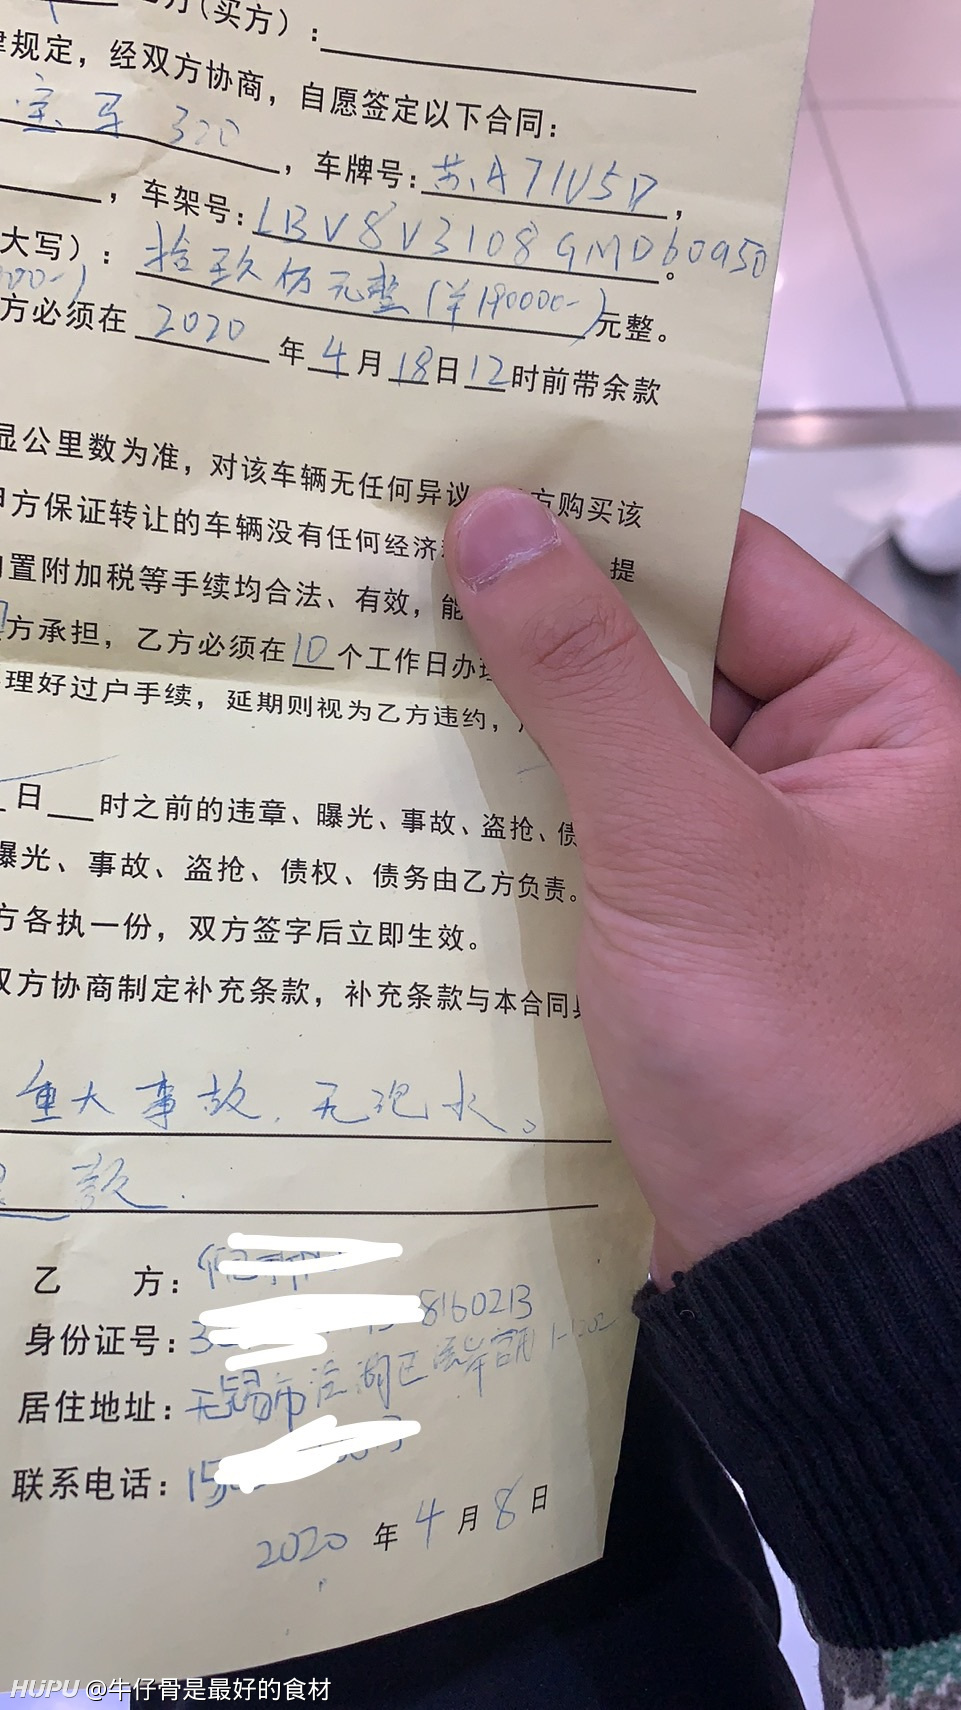 (买方）：
律规定，经双方协商，自愿签定以下合同：
宝马320，车牌号：苏A71U5D，
，车架号：LBV8V3108GMD60950。
大写）：拾玖万元整（¥190000-）元整。
方必须在2020年4月18日12时前带余款
显公里数为准，对该车辆无任何异议 方购买该
甲方保证转让的车辆没有任何经济 提
置附加税等手续均合法、有效，能
方承担，乙方必须在10个工作日办理
理好过户手续，延期则视为乙方违约，
日 时之前的违章、曝光、事故、盗抢、债
曝光、事故、盗抢、债权、债务由乙方负责。
方各执一份，双方签字后立即生效。
双方协商制定补充条款，补充条款与本合同具
重大事故．无泡水。
款．
乙 方：
身份证号：3 8160213
居住地址：无锡市 湖区 1-1202
联系电话：15
2020年4月8日
HUPU @牛仔骨是最好的食材